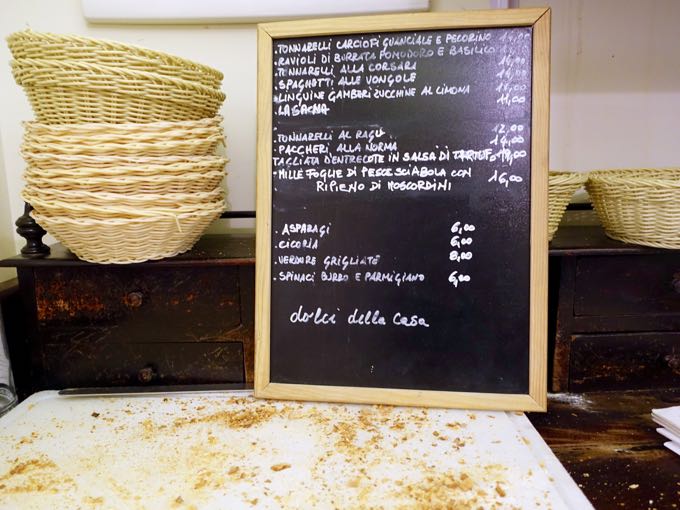 . TONNARELLI CARCIOFI GUANCIALE E PECORINO 14,00
. RAVIOLI DI BURRATA POMODORO E BASILICO
. TONNARELLI ALLA CORSARA 14,00
. SPAGHETTI ALLE VONGOLE 14,00
. LINGUINE GAMBERI ZUCCHINE AL LIMONA 14,00
. LASAGNA 11,00
. TONNARELLI AL RAGU' 12,00
. PACCHERI ALLA NORMA 14,00
TAGLIATA D'ENTRECOTE IN SALSA DI TARTUFO
. MILLE FOGLIE DI PESCE SCIABOLA CON
RIPIENO DI MOSCARDINI 16,00
. ASPARAGI 6,00
. CICORIA 6,00
. VERDURE GRIGLIATE 8,00
. SPINACI BURRO E PARMIGIANO 6,00
dolci della casa